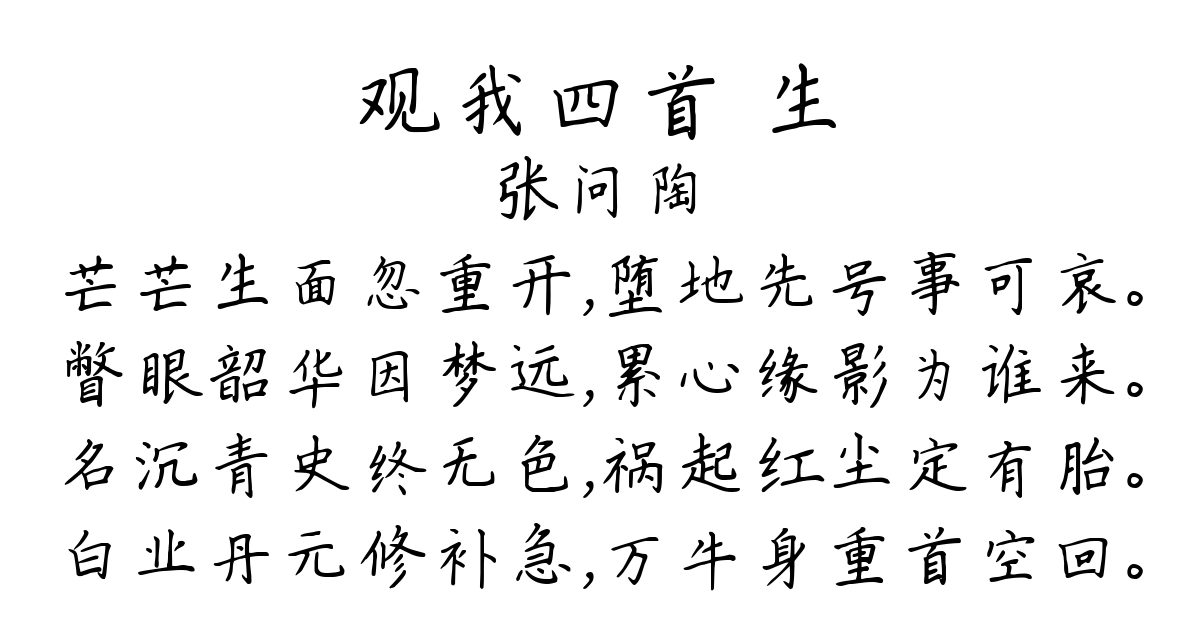 观我四首 生
张问陶
芒芒生面忽重开,堕地先号事可哀。
瞥眼韶华因梦远,累心缘影为谁来。
名沉青史终无色,祸起红尘定有胎。
白业丹元修补急,万牛身重首空回。